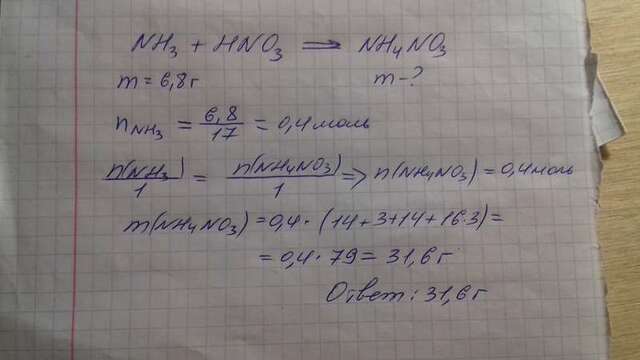 NH₃ + HNO₃ = NH₄NO₃
m = 6,8 г m - ?
n NH₃ = 6,8/17 = 0,4 моль
n(NH₃)/1 = n(NH₄NO₃)/1 => n(NH₄NO₃) = 0,4 моль
m(NH₄NO₃) = 0,4 · (14+3+14+16·3) =
= 0,4 · 79 = 31,6 г
Ответ: 31,6 г